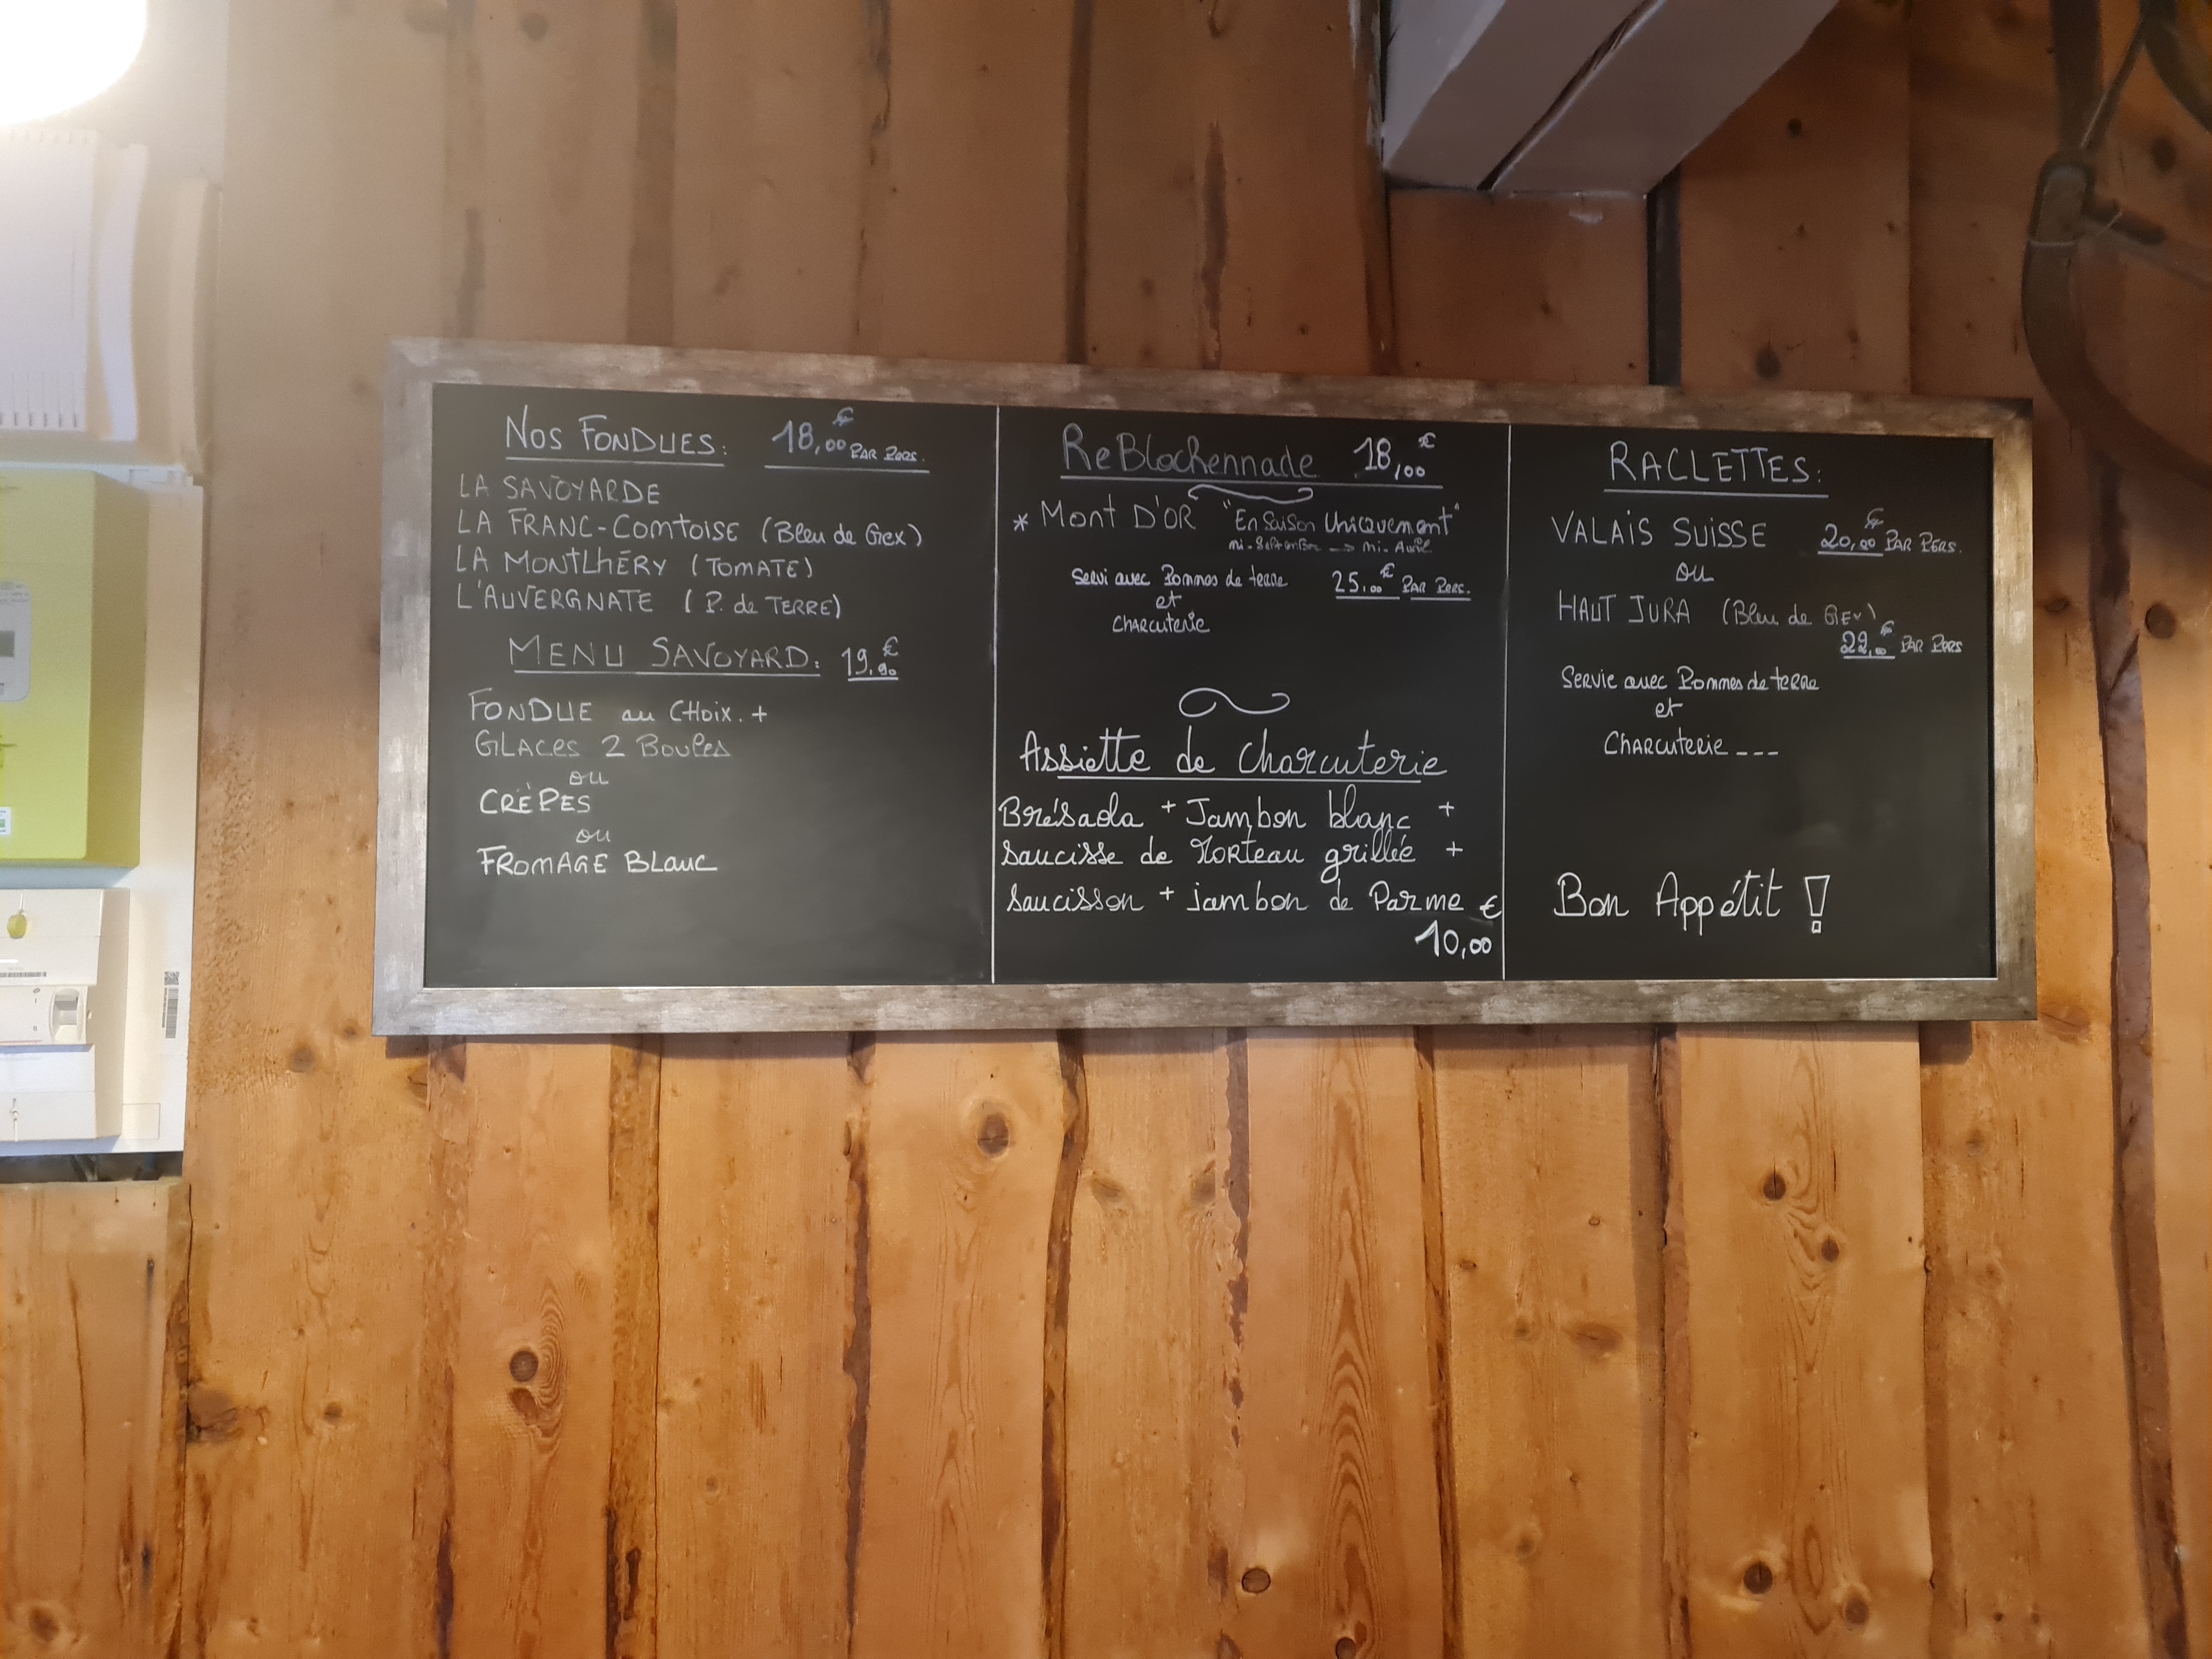 Nos FONDUES: 18,00€ PAR PERS.
LA SAVOYARDE
LA FRANC-COMTOISE (Bleu de Gex)
LA MONTLHÉRY (TOMATE)
L'AUVERGNATE (P. de TERRE)
MENU SAVOYARD: 19.90€
FONDUE au CHOIX. +
GLACES 2 Boules
ou
CRÊPES
ou
FROMAGE BLANC
ReBlochennade 18,00€
* MONT D'OR "En Saison Uniquement"
mi-Septembre --> mi-Avril
Servi avec Pommes de terre 25,00€ PAR PERS.
et
CHARCUTERIE
Assiette de charcuterie
Brésaola + Jambon blanc +
Saucisse de Morteau grillée +
Saucisson + jambon de Parme €
10,00
RACLETTES:
VALAIS SUISSE 20,00€ PAR PERS.
ou
HAUT JURA (Bleu de GEX)
22,00€ PAR PERS
Servie avec Pommes de terre
et
CHARCUTERIE ---
Bon Appétit !